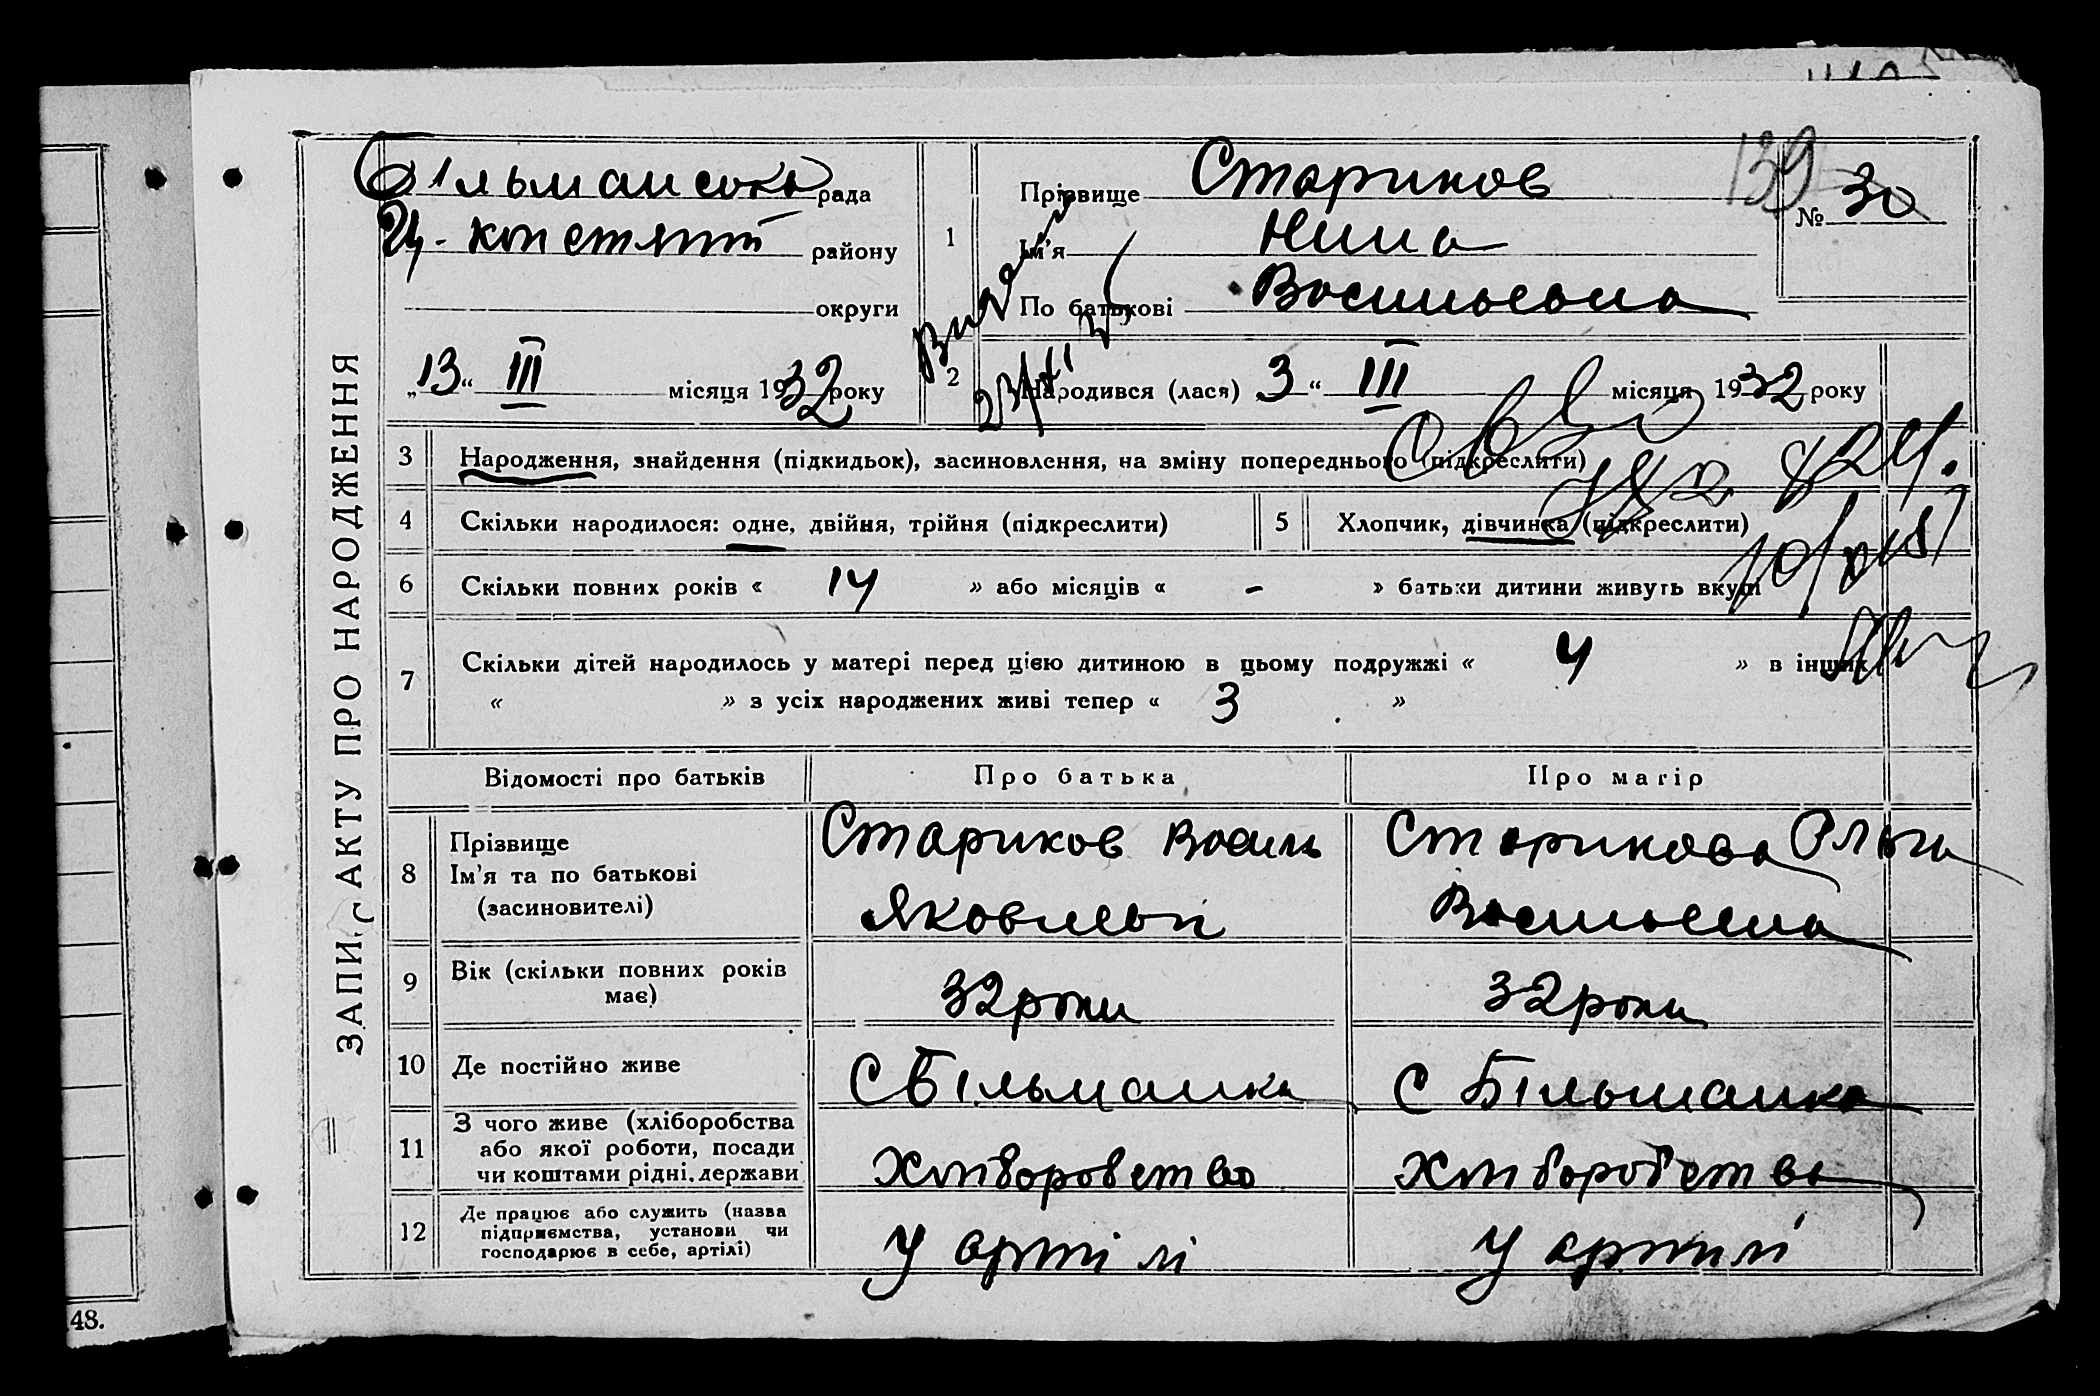 ЗАПИС АКТУ ПРО НАРОДЖЕННЯ
Більманська рада
району
округи
1
Прізвище Стариков
Ім'я Нина
По батькові Васильевна
139
№ 30
„13“ III місяця 1932 року
2
Народився (лася) 3 “ III місяця 1932 року
3 Народження, знайдення (підкидьок), засиновлення, на зміну попереднього (підкреслити)
4 Скільки народилося: одне, двійня, трійня (підкреслити)
5 Хлопчик, дівчинка (підкреслити)
6 Скільки повних років « 14 » або місяців « - » батьки дитини живуть вкупі
7 Скільки дітей народилось у матері перед цією дитиною в цьому подружжі « 4 » в інших
« » з усіх народжених живі тепер « 3 »
Відомості про батьків
Про батька
Про матір
8 Прізвище
Ім'я та по батькові
(засиновителі)
Стариков Василь
Яковлевич
Старикова Ольга
Васильевна
9 Вік (скільки повних років
має)
32 роки
32 роки
10 Де постійно живе
С Більманка
С Більманка
11 З чого живе (хліборобства
або якої роботи, посади
чи коштами рідні, держави
Хліборобство
Хліборобство
12 Де працює або служить (назва
підприємства, установи чи
господарює в себе, артілі)
У артілі
У артилі
48.